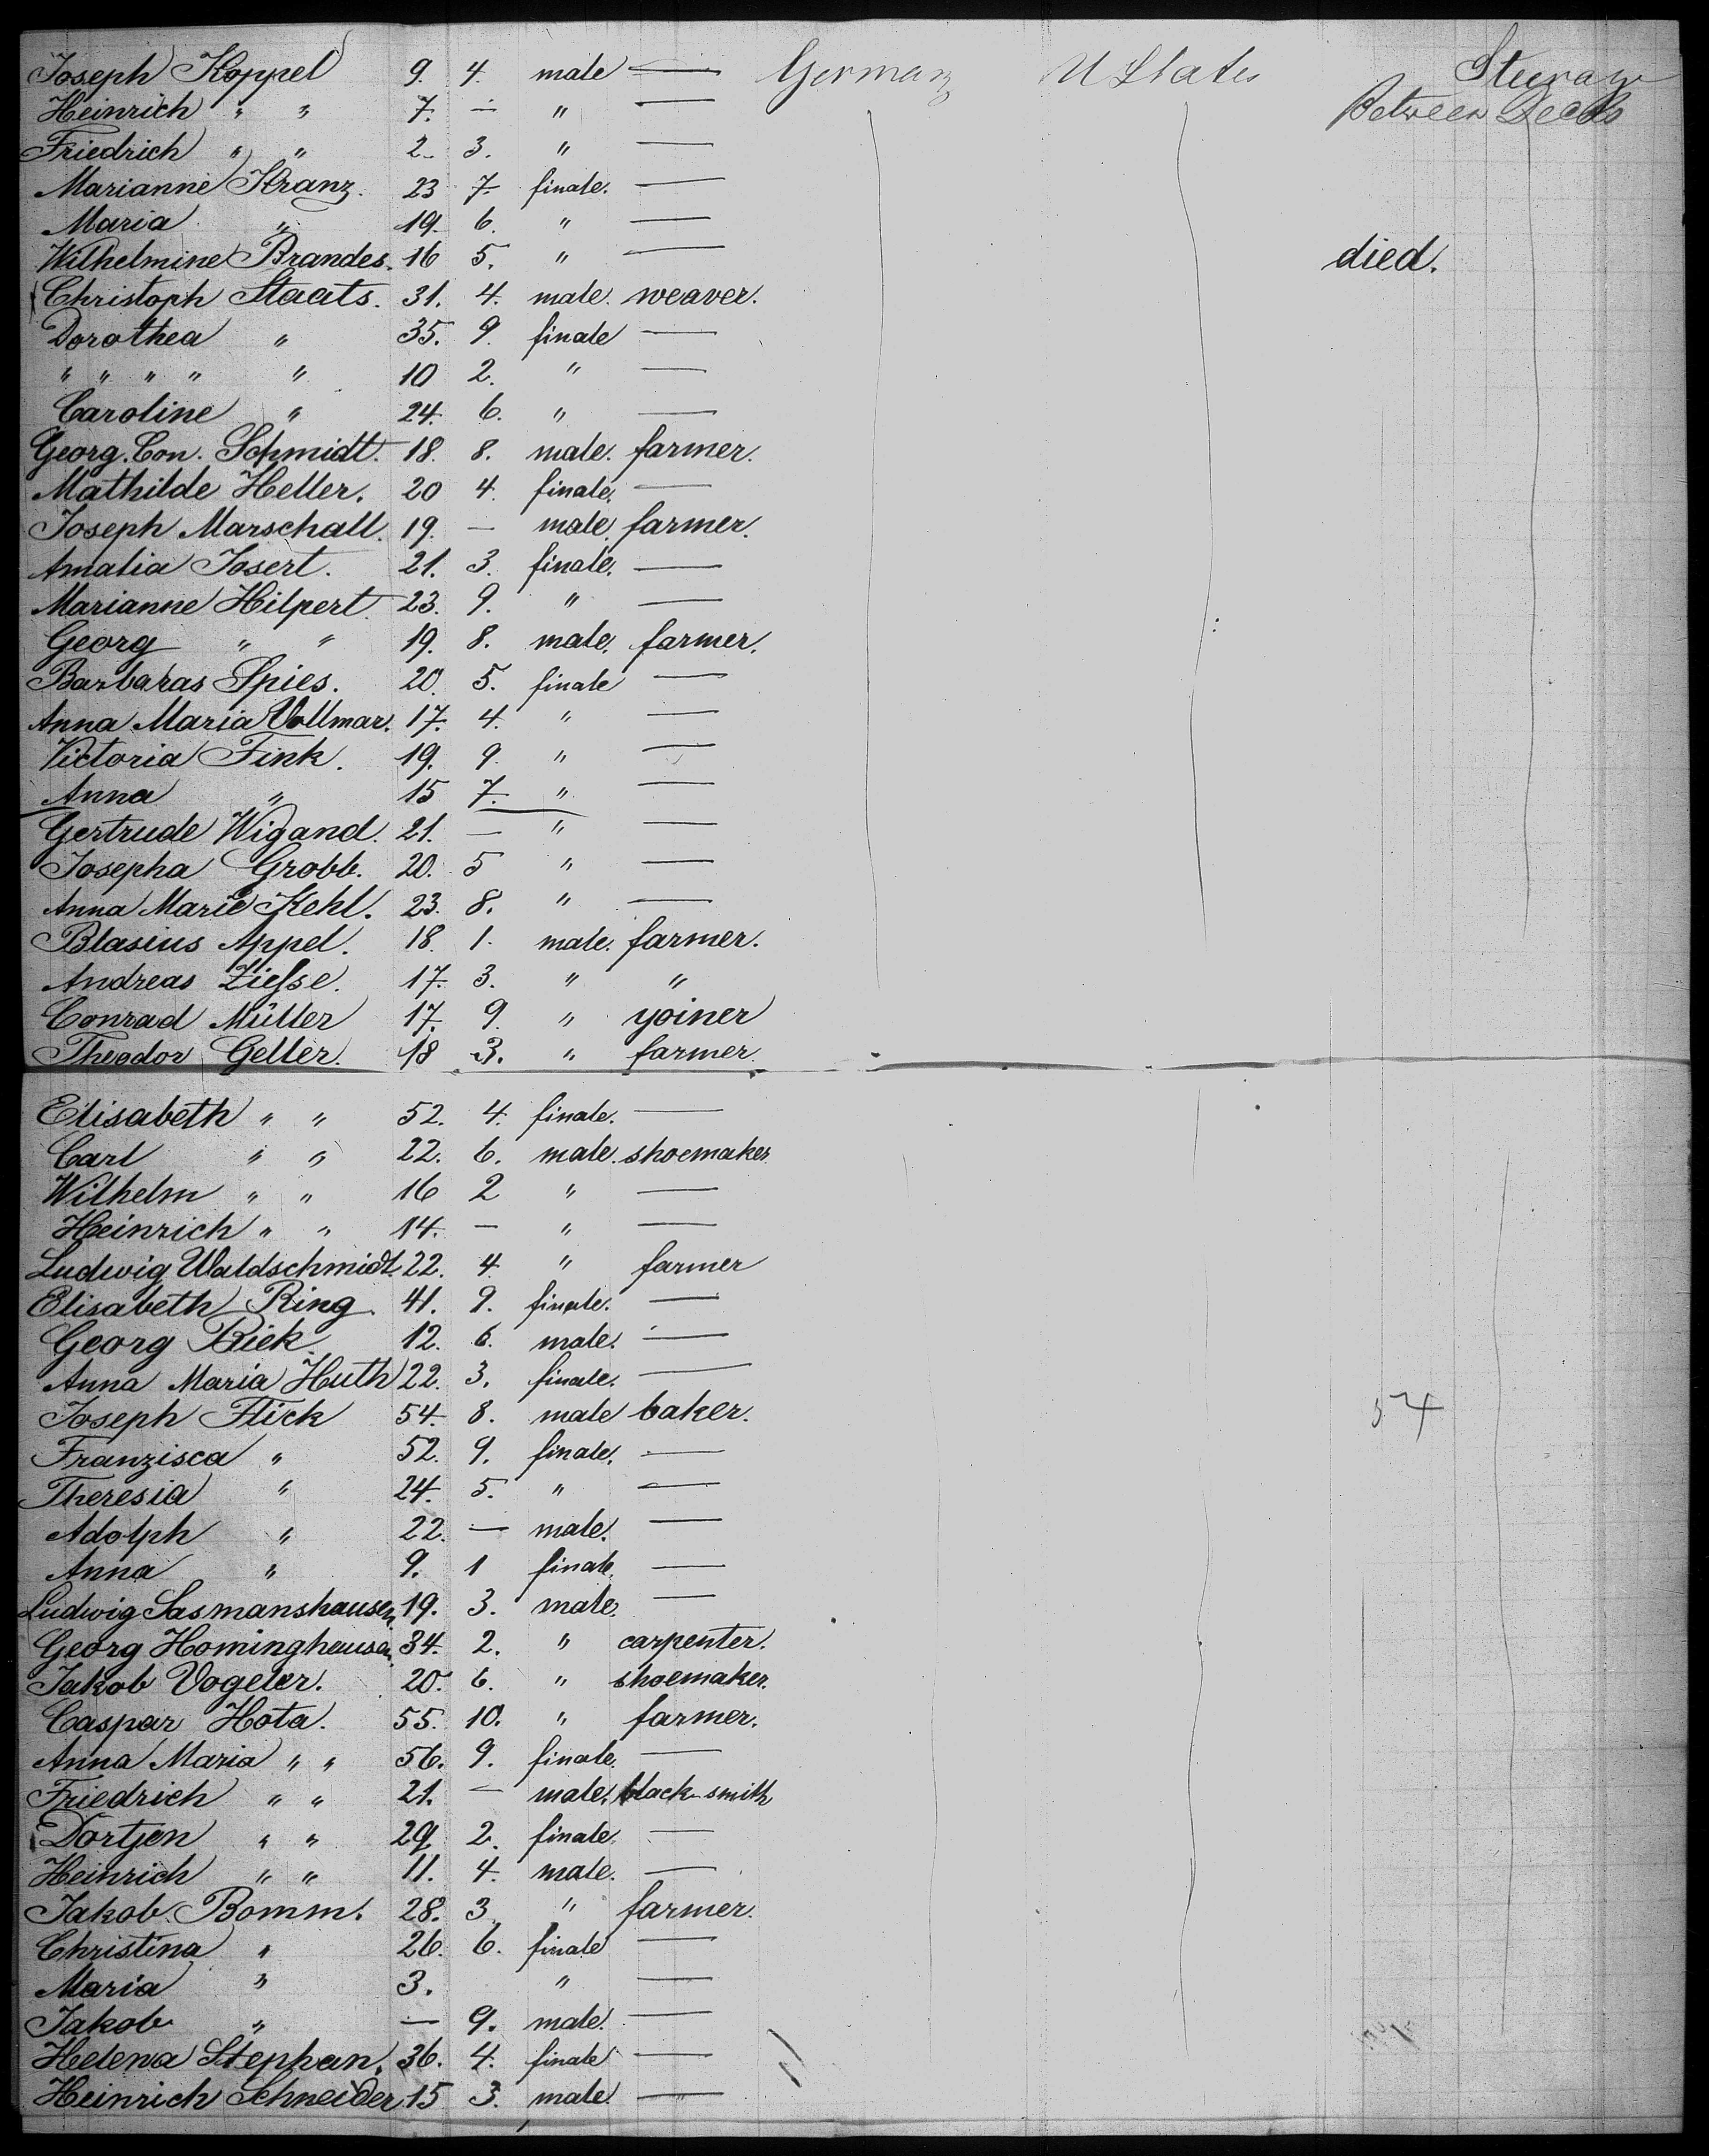 Joseph Koppel 9. 4. male — Germany U States Steerage
Heinrich " " 7. — " — Between Decks
Friedrich " " 2 3. " —
Marianne Kranz. 23 7. finale. —
Maria " 19. 6. " —
Wilhelmine Brandes. 16 5. " — died.
Christoph Staats. 31. 4. male. weaver.
Dorothea " 35. 9. finale —
" " " " " 10 2. " —
Caroline " 24. 6. " —
Georg. Con. Schmidt. 18. 8. male. farmer.
Mathilde Heller. 20 4. finale. —
Joseph Marschall. 19. — male. farmer.
Amalia Josert. 21. 3. finale. —
Marianne Hilpert. 23. 9. " —
Georg " " 19. 8. male. farmer.
Barbaras Spies. 20. 5. finale —
Anna Maria Vollmar. 17. 4. " —
Victoria Fink. 19. 9. " —
Anna " 15 7. " —
Gertrude Wigand. 21. — " —
Josepha Grobb. 20. 5 " —
Anna Marie Kehl. 23. 8. " —
Blasius Appel. 18. 1. male. farmer.
Andreas Ziesse. 17. 3. " "
Conrad Müller 17. 9. " yoiner
Theodor Geller. 18 3. " farmer.
Elisabeth " " 52. 4. finale. —
Carl " " 22. 6. male. shoemaker
Wilhelm " " 16 2 " —
Heinrich " " 14. — " —
Ludwig Waldschmidt. 22. 4. " farmer
Elisabeth Ring. 41. 9. finale. —
Georg Riek 12. 6. male. —
Anna Maria Huth 22. 3. finale. —
Joseph Flick 54. 8. male baker. 54
Franzisca " 52. 9. finale. —
Theresia " 24. 5. " —
Adolph " 22. — male. —
Anna " 9. 1 finale. —
Ludwig Sasmanshausen 19. 3. male. —
Georg Hominghausen. 34. 2. " carpenter.
Jakob Vogeler. 20. 6. " shoemaker.
Caspar Hota. 55. 10. " farmer.
Anna Maria " " 56. 9. finale. —
Friedrich " " 21. — male. black smith
Dortjen " " 29 2. finale. —
Heinrich " " 11. 4. male. —
Jakob Bomm. 28. 3. " farmer.
Christina " 26. 6. finale —
Maria " 3. " —
Jakob " — 9. male. —
Helena Stephan. 36. 4. finale —
Heinrich Schneider 15 3. male. —